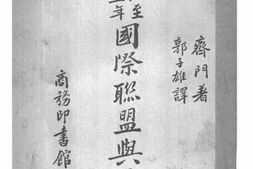 齊門著
郭子雄譯
至
年
國際聯盟與
商務印書館